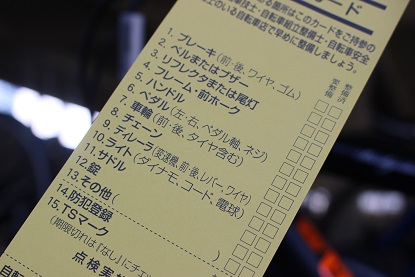 ード
箇所はこのカードをご持参の
技士・自転車組立整備士・自転車安全
のいる自転車店で早めに整備しましょう。
要整備 整備済
1. ブレーキ(前・後、ワイヤ、ゴム)
2. ベルまたはブザー
3. リフレクタまたは尾灯
4. フレーム・前ホーク
5. ハンドル
6. ペダル(左・右、ペダル軸、ネジ)
7. 車輪(前・後、タイヤ含む)
8. チェーン
9. ディレーラ(変速機、前・後、レバー、ワイヤ)
10. ライト(ダイナモ、コード・電球)
11. サドル
12. 錠
13. その他( )
14. 防犯登録
15. TSマーク
(期限切れは「なし」にチェ
点検実
自転